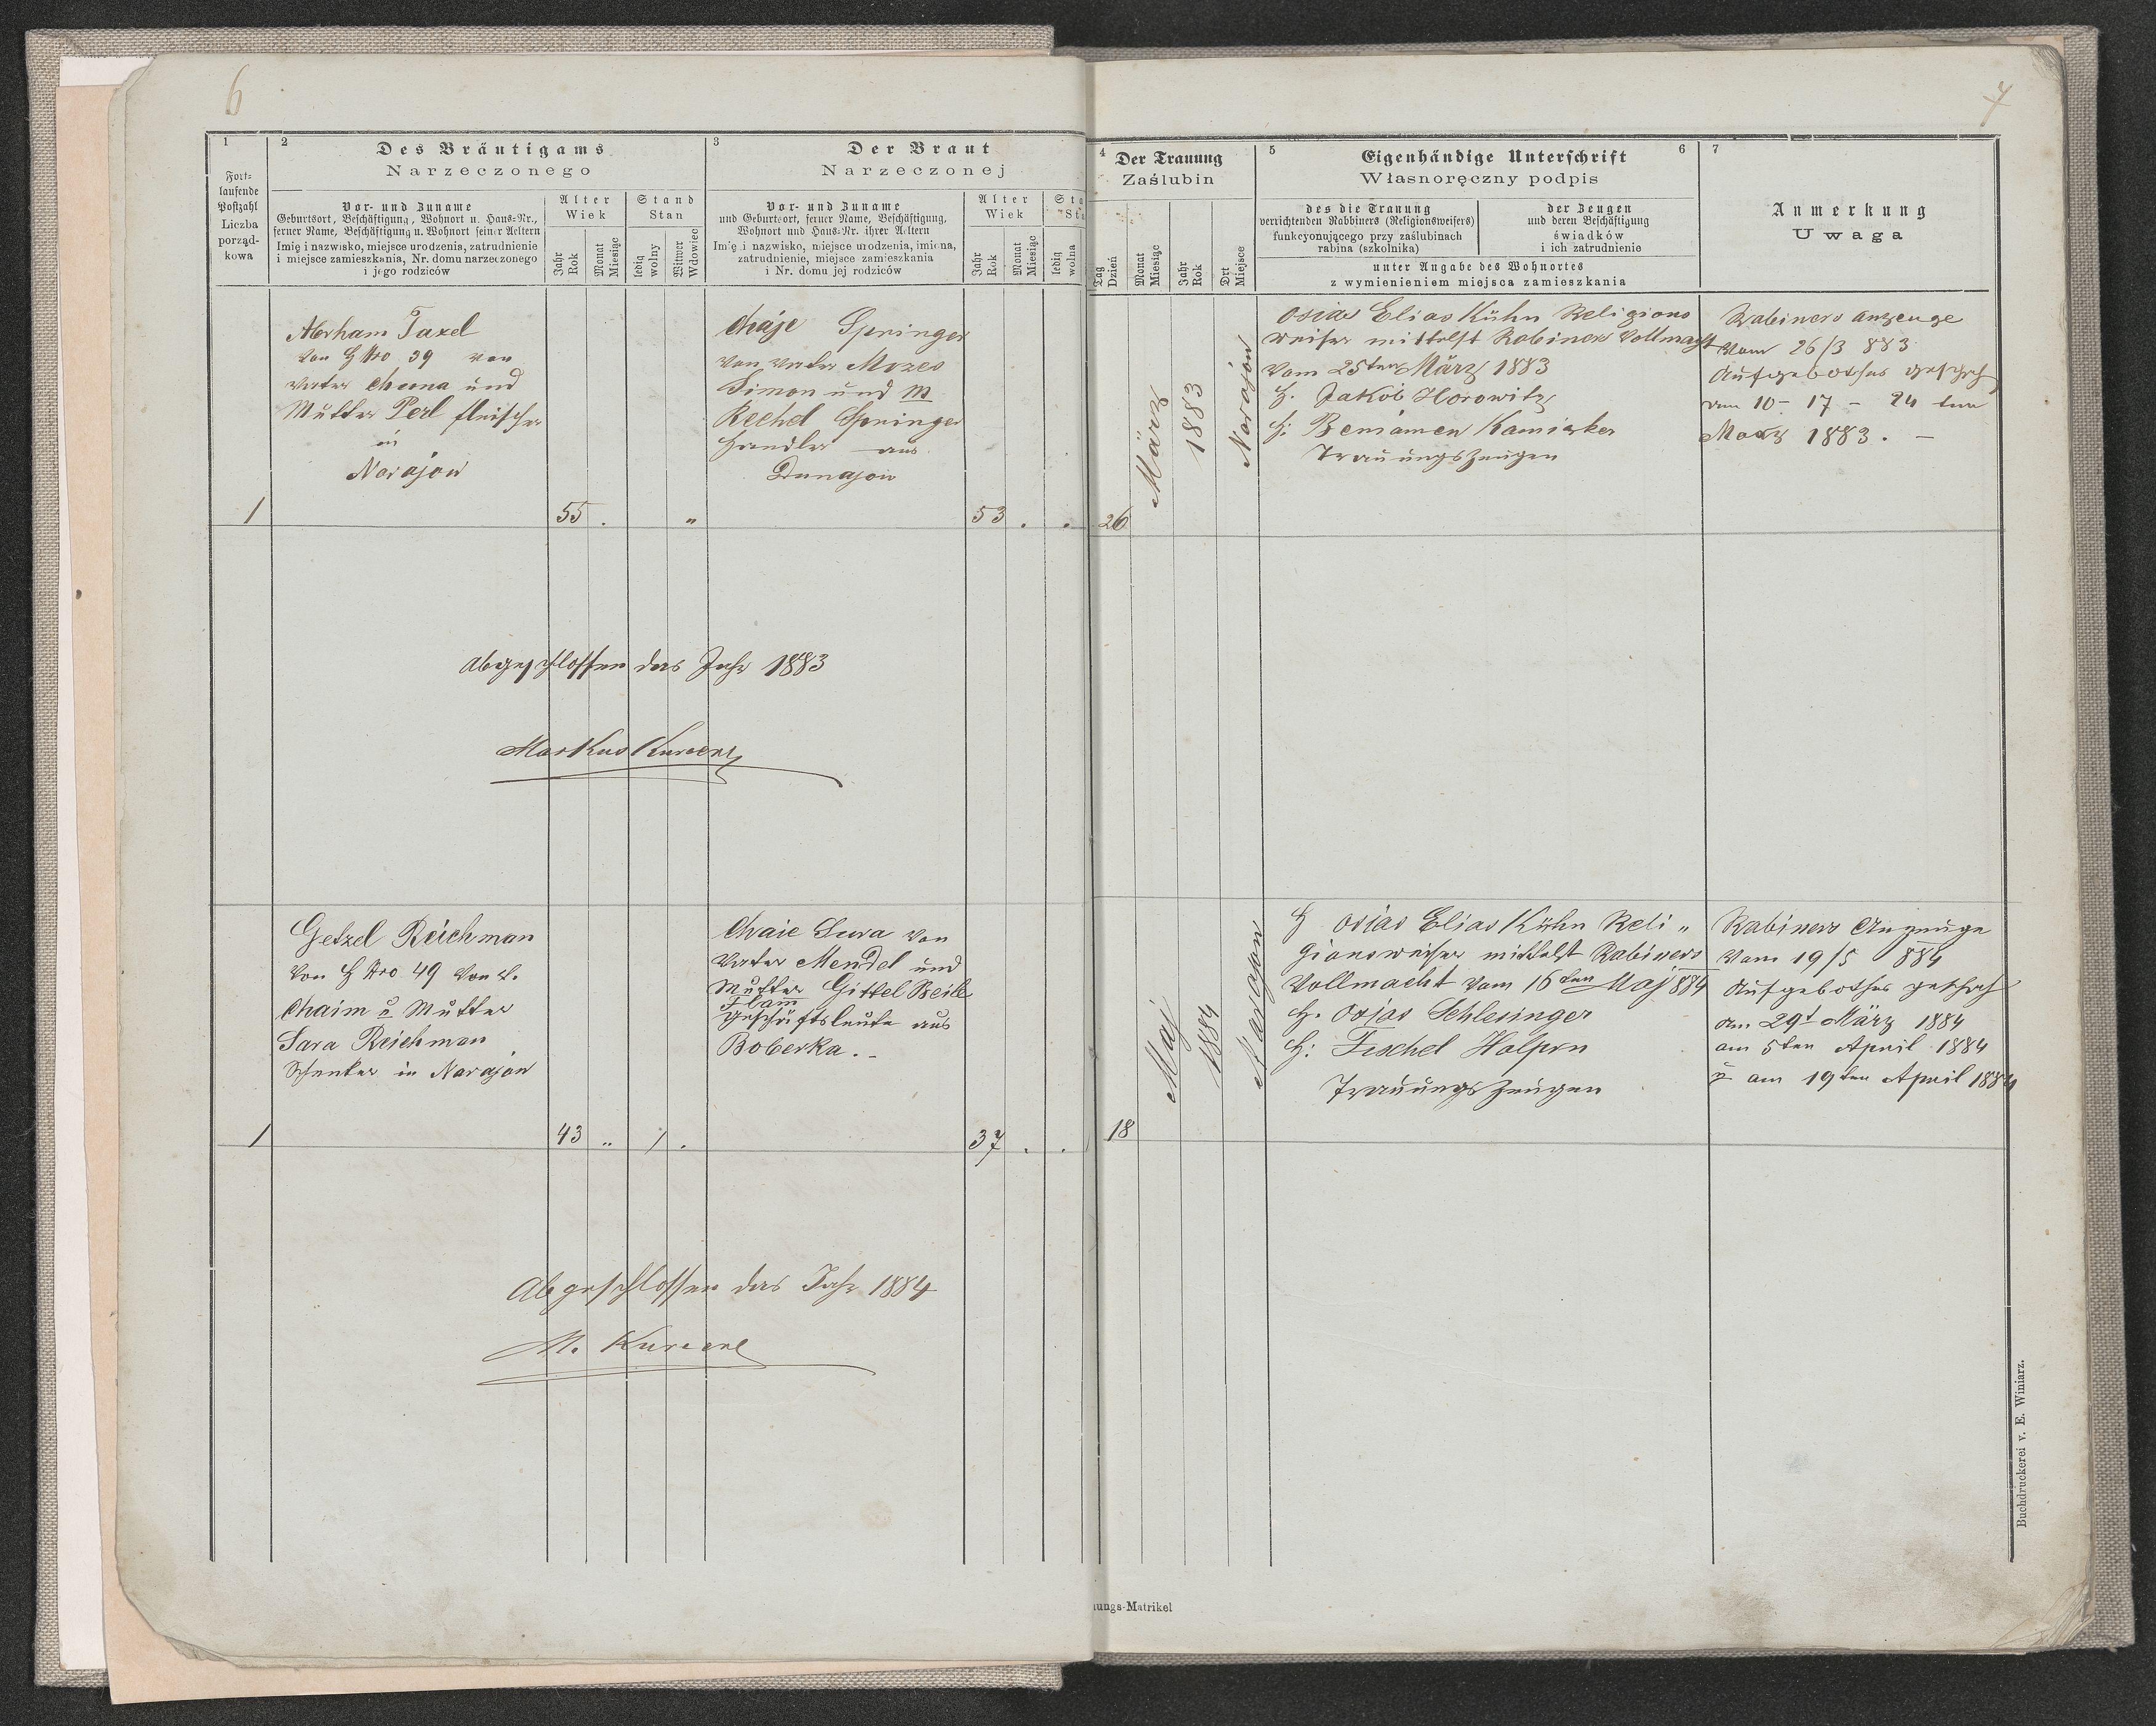 6
7
1
Fort-
laufende
Postzahl
Liczba
porząd-
kowa
2
Des Bräutigams
Narzeczonego
Vor- und Zuname
Geburtsort, Beschäftigung, Wohnort u. Haus-Nr.,
ferner Name, Beschäftigung u. Wohnort seiner Aeltern
Imię i nazwisko, miejsce urodzenia, zatrudnienie
i miejsce zamieszkania, Nr. domu narzeczonego
i jego rodziców
Alter
Wiek
Jahr
Rok
Monat
Miesiąc
Stand
Stan
ledig
wolny
Witwer
Wdowiec
3
Der Braut
Narzeczonej
Vor- und Zuname
und Geburtsort, ferner Name, Beschäftigung,
Wohnort und Haus-Nr. ihrer Aeltern
Imię i nazwisko, miejsce urodzenia, imiona,
zatrudnienie, miejsce zamieszkania
i Nr. domu jej rodziców
Alter
Wiek
Jahr
Rok
Monat
Miesiąc
Sta
Sta
ledig
wolna
4
Der Trauung
Zaślubin
Tag
Dzień
Monat
Miesiąc
Jahr
Rok
Ort
Miejsce
5
Eigenhändige Unterschrift
6
Własnoręczny podpis
des die Trauung
verrichtenden Rabbiners (Religionsweisers)
funkcyonującego przy zaślubinach
rabina (szkolnika)
der Zeugen
und deren Beschäftigung
świadków
i ich zatrudnienie
unter Angabe des Wohnortes
z wymienieniem miejsca zamieszkania
7
Anmerkung
Uwaga
Abrham Taxel
von H Nro 39 von
Vater Chuna und
Mutter Perl fleischer
in
Narajow
1
55 .
"
Chaje Springer
von Vater Mozes
Simon und M
Rechel Springer
Handler aus
Dunajow
53 . .
26
März
1883
Narajow
Osias Elias Kühn Religions
weiser mittelst Rabiners Vollmacht
vom 25ten März 1883
H. Jakob Horowitz
H: Beniamen Kamiarker
Trauungszeugen
Rabiners Anzeuge
vom 26/3 883
Aufgebothes geschah
am 10 - 17 - 24 ten
März 1883. -
Abgeschlossen das Jahr 1883
Markus Kurcerz
Getzel Reichman
von H Nro 49 von V.
Chaim u Mutter
Sara Reichman
Schenker in Narajow
1
43 " 1 .
Chaie Sura von
Vater Mendel und
Mutter Gittel Beile
Flam
Geschäftsleute aus
Boberka. -
37 . .
18
Maj
1884
Narajow
H Osias Elias Kühn Reli "
gionsweiser mittelst Rabiners
Vollmacht vom 16ten Maj 884
H. Osias Schlesinger
H: Fischel Halprn
Trauungs Zeugen
Rabiners Anzeuge
vom 19/5 884
Aufgebothes geschah
am 29t März 1884
am 5ten April 1884
u am 19ten April 1884
Abgeschlossen das Jahr 1884
M. Kurcerz
ungs-Matrikel
Buchdruckerei v. E. Winiarz.